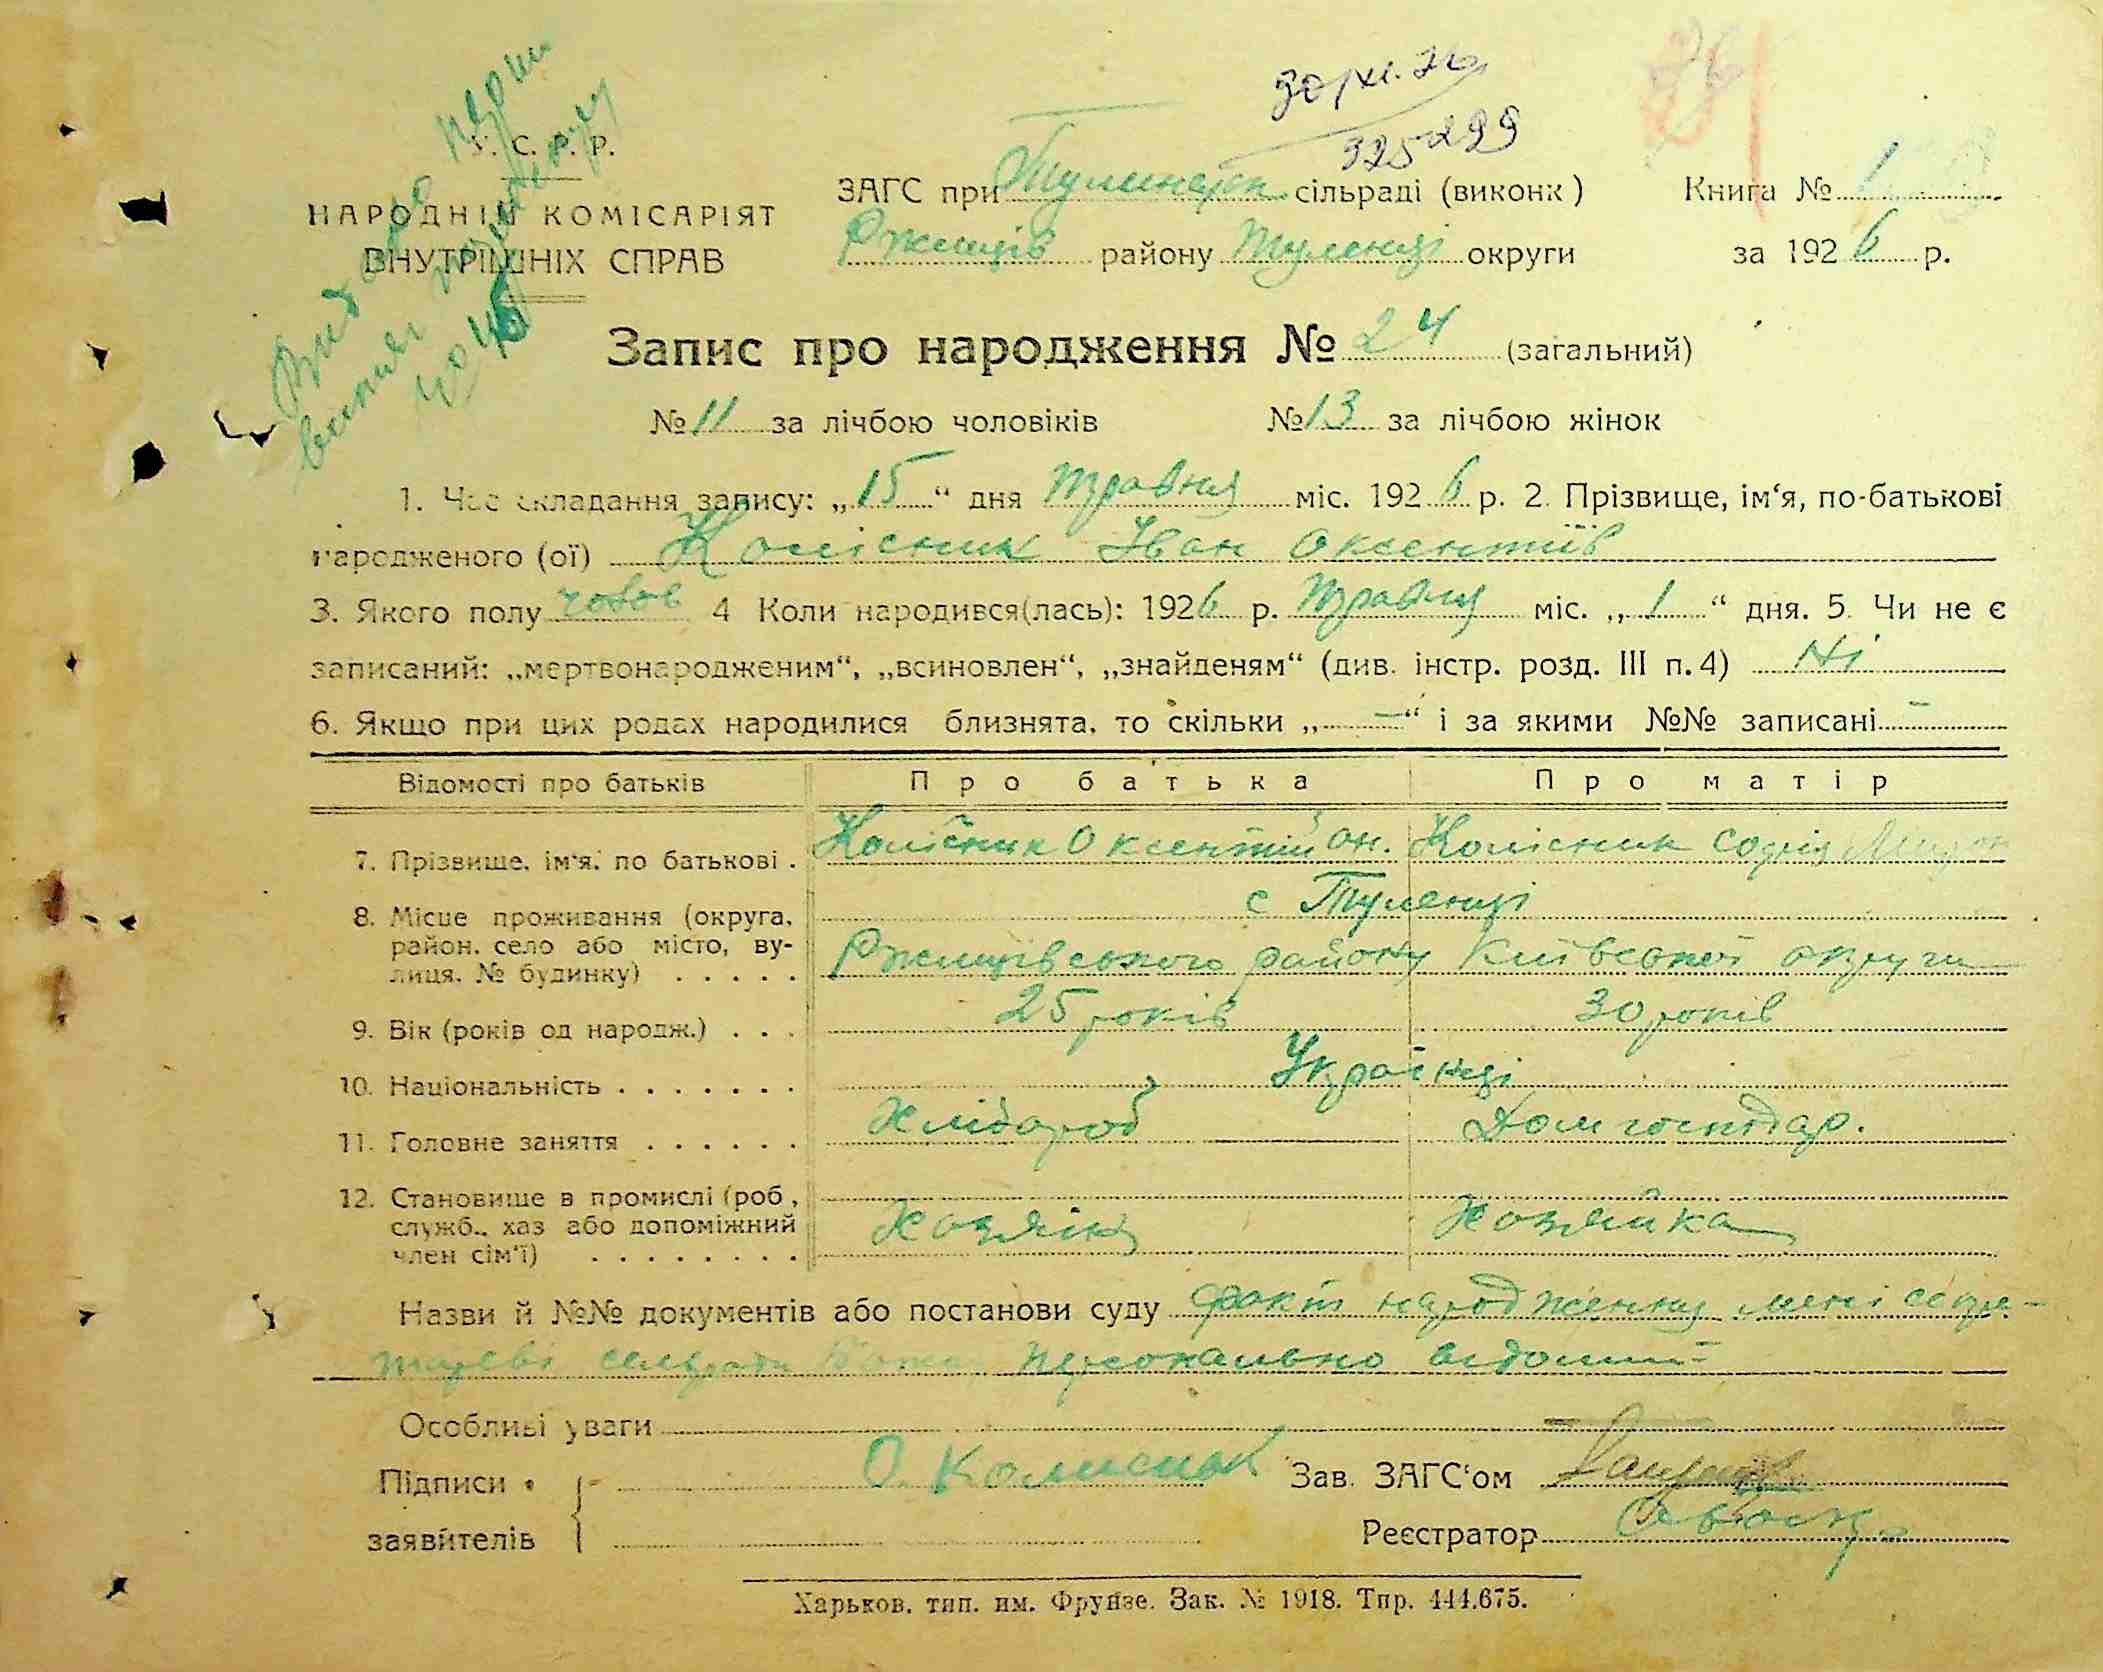 30/XI. 76
325299
Видано перш
У. С. Р. Р.
НАРОДНІЙ КОМІСАРІЯТ
ВНУТРІШНІХ СПРАВ
ЗАГС при сільраді (виконк)
Книга № 1
Ржищів району Туленці округи
за 1926 р.
Запис про народження № 24 (загальний)
№ 11 за лічбою чоловіків № 13 за лічбою жінок
1. Час складання запису: „15“ дня травня міс. 1926 р. 2. Прізвище, ім‘я, по-батькові
народженого (ої) Колісник Іван Оксентіїв
3. Якого полу чолов 4 Коли народився(лась): 1926 р. травня міс. „1“ дня. 5. Чи не є
записаний: „мертвонародженим“, „всиновлен“, „знайденям“ (див. інстр. розд. III п. 4) Ні
6. Якщо при цих родах народилися близнята, то скільки „—“ і за якими №№ записані —
Відомості про батьків Про батька Про матір
7. Прізвище, ім‘я, по батькові . Колісник Оксентій он. Колісник Софія
8. Місце проживання (округа, с Туленці
район, село або місто, ву-
лиця, № будинку) . . . . . Ржищівського району Київської округи
9. Вік (років од народж.) . . . 25 років 30 років
10. Національність . . . . . . . Українці
11. Головне заняття . . . . . . Хлібороб Домгосподар.
12. Становище в промислі (роб,
служб., хаз або допоміжний Хозяін Хозяйка
член сім‘ї) . . . . . . . .
Назви й №№ документів або постанови суду факт народження мені секре-
тареві сельради персонально відомий
Особливі уваги
Підписи О. Колисник Зав. ЗАГС‘ом
заявителів Реєстратор
Харьков, тип. им. Фрунзе. Зак. № 1918. Тпр. 444.675.